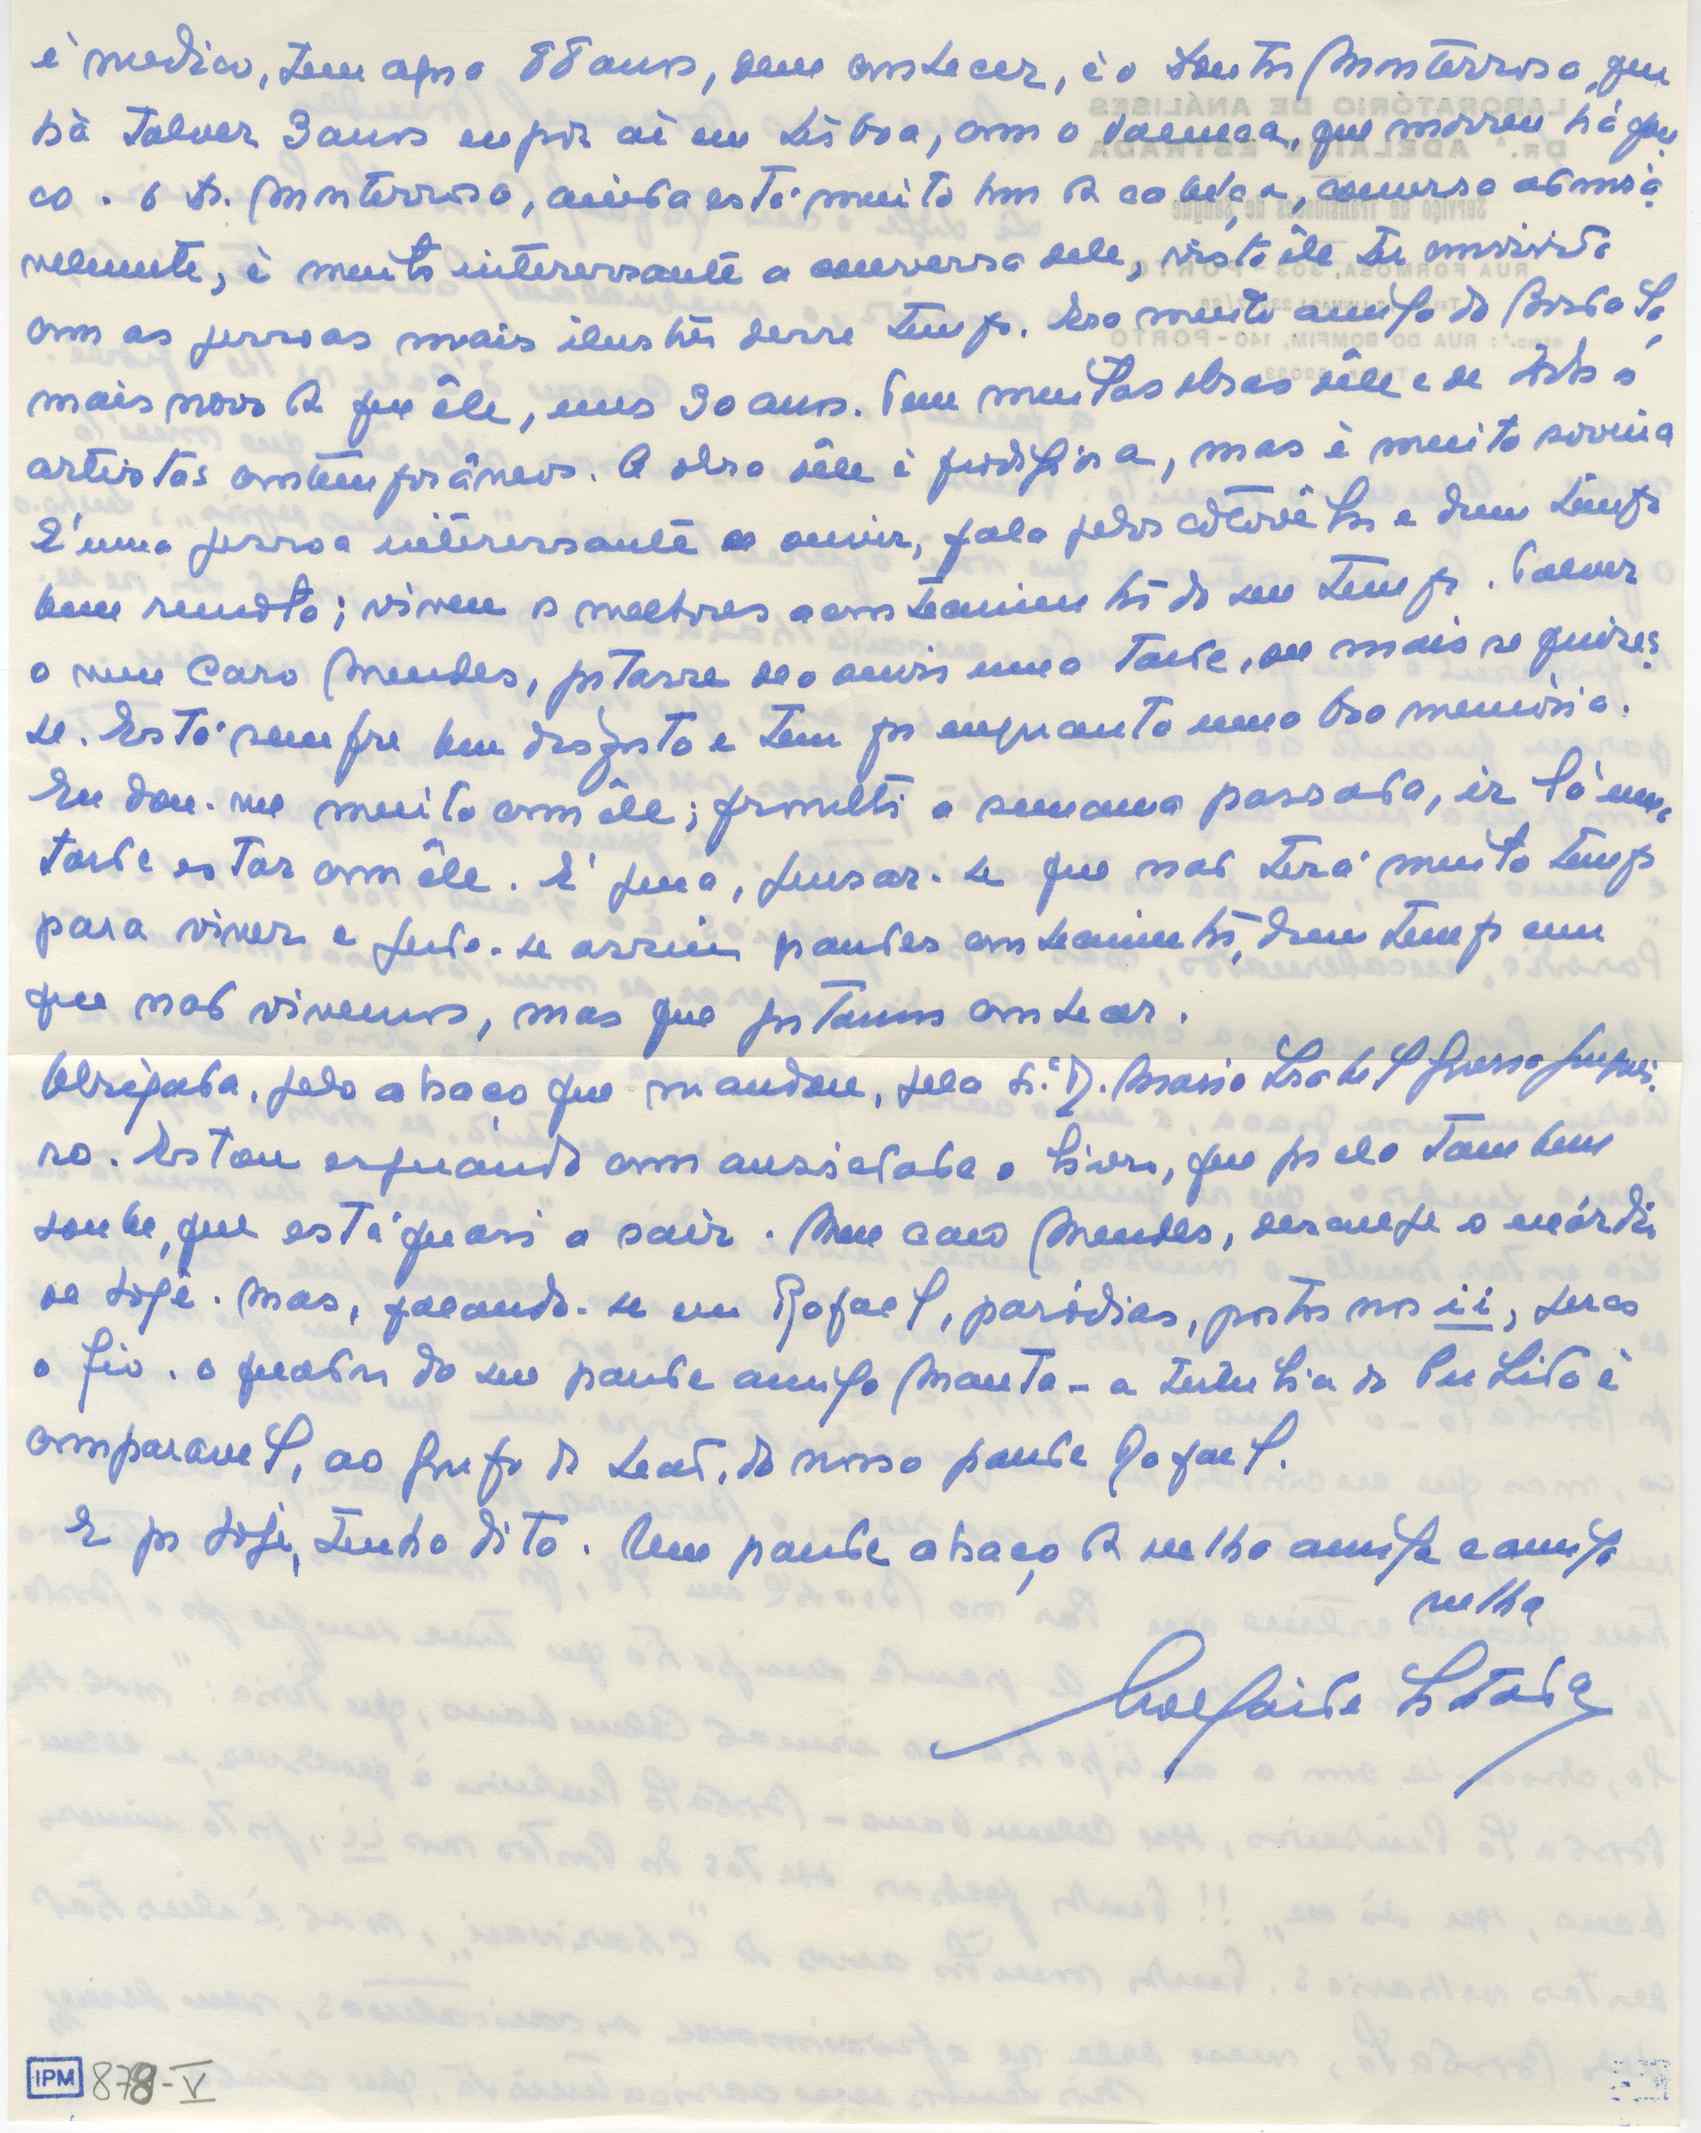 é medico, tem agora 88 anos, deve conhecer, é o Santos Monterroso, que
há talvez 3 anos expôs aí em Lisboa, com o Valença, que morreu há pou-
co. O Dr. Monterroso, ainda está muito bom de cabeça, conversa admirá-
velmente, é muito interessante a conversa dele, visto êle ter convivido
com as pessoas mais ilustres desse tempo. Era muito amigo do Bordalo,
mais novo do que êle, uns 30 anos. Tem muitas obras dêle e de todos os
artistas contemporâneos. A obra dêle é prodigiosa, mas é muito sovina
É uma pessoa interessante de ouvir, fala pelos cotovêlos e dum tempo
bem remoto; viveu os melhores acontecimentos do seu tempo. Talvez
o meu Caro Mendes, gostasse de o ouvir uma tarde, ou mais se quizes-
se. Está sempre bem disposto e tem por enquanto uma boa memória.
Eu dou-me muito com êle; prometi a semana passada, ir lá uma
tarde estar com êle. É pena, pensar-se que não terá muito tempo
para viver e perde-se assim grandes conhecimentos, dum tempo em
que não vivemos, mas que gostamos conhecer.
Obrigada, pelo abraço que mandou, pela Sr.ª D. Maria Isabel Guerra Junquei-
ro. Estou esperando com ansiedade o livro, que por ela tambem
soube, que está quasi a sair. Meu caro Mendes, desculpe o exórdio
de hoje. Mas, falando-se em Rafael, paródias, pontos nos ii, perco
o fio. O quadro do seu grande amigo Manta - a tertulia do
comparavel, ao Grupo do Leão, do nosso grande Rafael.
E por hoje, tenho dito. Um grande abraço da velha amiga e amiga
velha
Adelaide Estrada
LABORATÓRIO DE ANÁLISES
DR.ª ADELAIDE ESTRADA
Serviço de Transfusões de Sangue
RUA FORMOSA, 303 - PORTO
RUA DO BOMFIM, 140 - PORTO
IPM 878-V